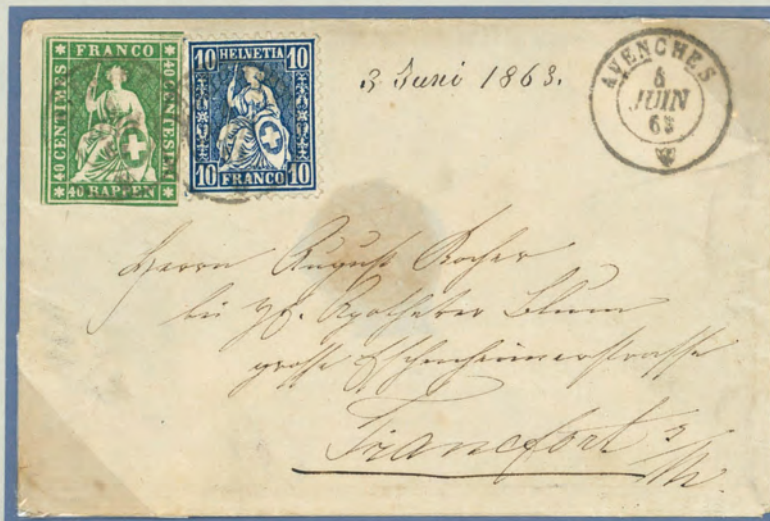 FRANCO
40 CENTIMES
40 CENTESIMI
40 RAPPEN
10 HELVETIA 10
10 FRANCO 10
3 Juni 1863.
AVENCHES
JUIN
63
Herrn August
bei Apotheker Blum
grosse Eschenheimerstrasse
Francfort a/M.